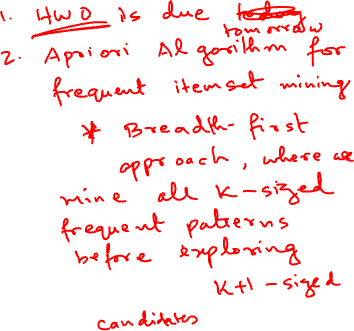 1. HW0 is due today
tomorrow
2. Apriori Algorithm for
frequent itemset mining
* Breadth-first
approach, where we
mine all K-sized
frequent patterns
before exploring
K+1-sized
candidates